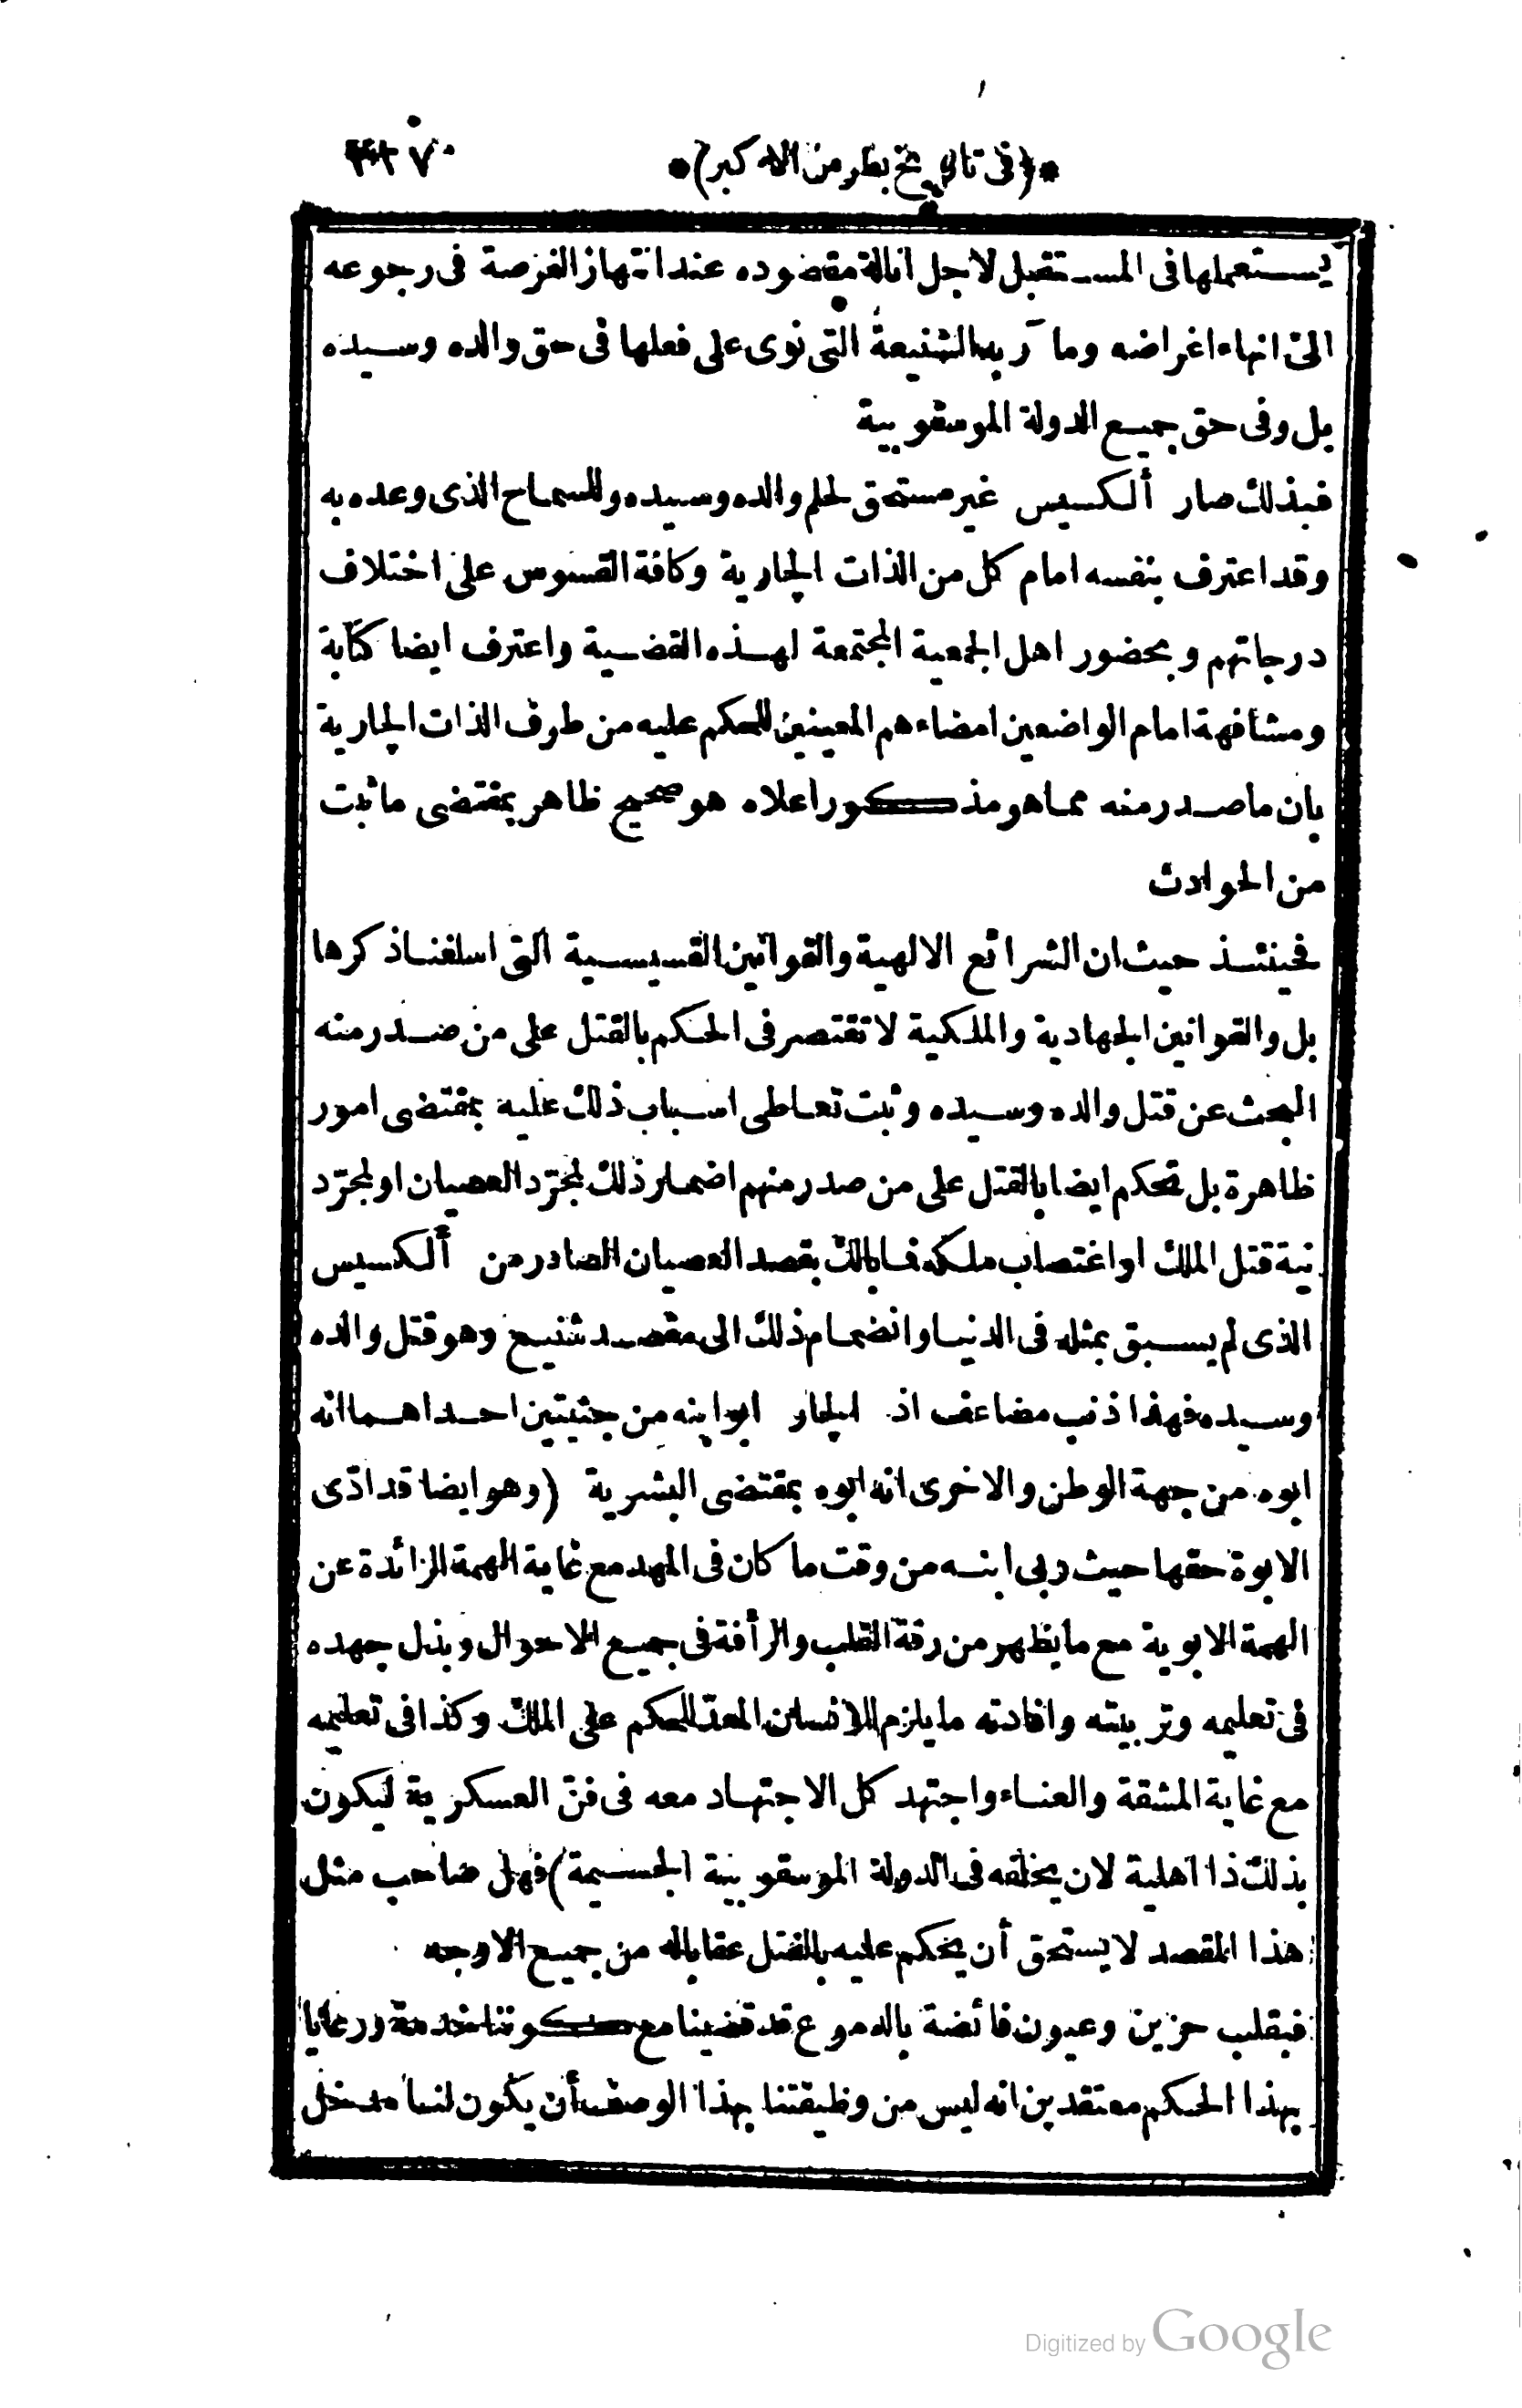 *(فى تاريخ بطرس الاكبر)*
يستعملها فى المستقبل لاجل انالة مقصوده عند انتهاز الفرصة فى رجوعه
الى انهاء اغراضه وما ربه الشنيعة التى نوى على فعلها فى حق والده وسيده
بل وفى حق جميع الدولة الموسقوبية
فبذلك صار ألكسيس غير مستحق لحلم والده وسيده وللسماح الذى وعده به
وقد اعترف بنفسه امام كل من الذات الجارية وكافة القسوس على اختلاف
درجاتهم وبحضور اهل الجمعية المجتمعة لهذه القضية واعترف ايضا كتابة
ومشافهة امام الواضعين امضاءهم المعينين للحكم عليه من طرف الذات الجارية
بان ما صدر منه مما هو مذكور اعلاه هو صحيح ظاهر بمقتضى ما ثبت
من الحوادث
فحينئذ حيث ان الشرائع الالهية والقوانين القسيسية التى اسلفنا ذكرها
بل والقوانين الجهادية والملكية لا تقتصر فى الحكم بالقتل على من صدر منه
البحث عن قتل والده وسيده وثبت تعاطى اسباب ذلك عليه بمقتضى امور
ظاهرة بل تحكم ايضا بالقتل على من صدر منهم اضمار ذلك لمجرّد العصيان او لمجرّد
نية قتل الملك او اغتصاب ملكه فما بالك بقصد العصيان الصادر من ألكسيس
الذى لم يسبق بمثله فى الدنيا وانضمام ذلك الى مقصد شنيع وهو قتل والده
وسيده فهذا ذنب مضاعف اذ الجار ابو ابنه من جثيتين احداهما انه
ابوه من جهة الوطن والاخرى انه ابوه بمقتضى البشرية (وهو ايضا قد ادّى
الابوة حقها حيث ربى ابنه من وقت ما كان فى المهد مع غاية الهمة الزائدة عن
الهمة الابوية مع ما يظهر من رقة القلب والرأفة فى جميع الاحوال وبذل جهده
فى تعليمه وتربيته وافادته ما يلزم للانسان المعدّ للحكم على الملك وكذا فى تعليمه
مع غاية المشقة والعناء واجتهد كل الاجتهاد معه فى فنّ العسكرية ليكون
بذلك ذا اهلية لان يخلفه فى الدولة الموسقوبية الجسيمة) فهل صاحب مثل
هذا المقصد لا يستحق أن يحكم عليه بالقتل عقابا له من جميع الاوجه
فبقلب حزين وعيون فائضة بالدموع قد قضينا مع كوننا خدمة ورعايا
بهذا الحكم معتقدين انه ليس من وظيفتنا بهذا الوصف أن يكون لنا مدخل
Digitized by Google